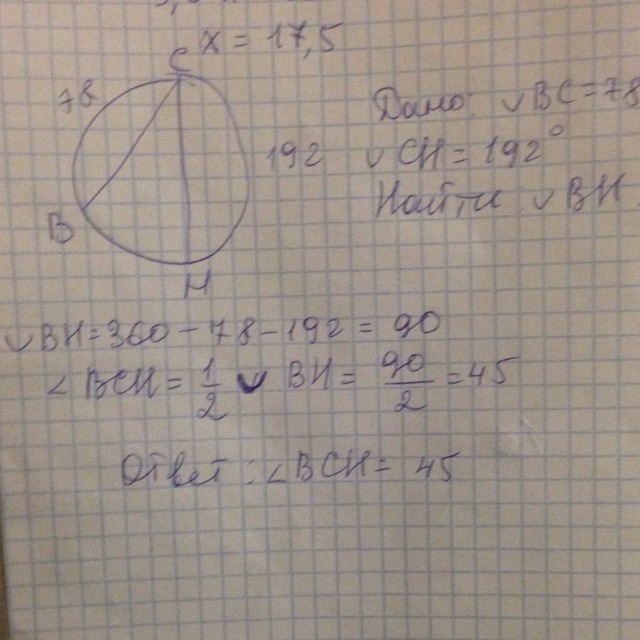 x = 17,5
C
78
192
B
H
Дано: ◡BC=78
◡CH=192°
Найти ◡BH.
◡BH=360-78-192=90
∠BCH=1/2 ◡ BH=90/2=45
Ответ:∠BCH=45